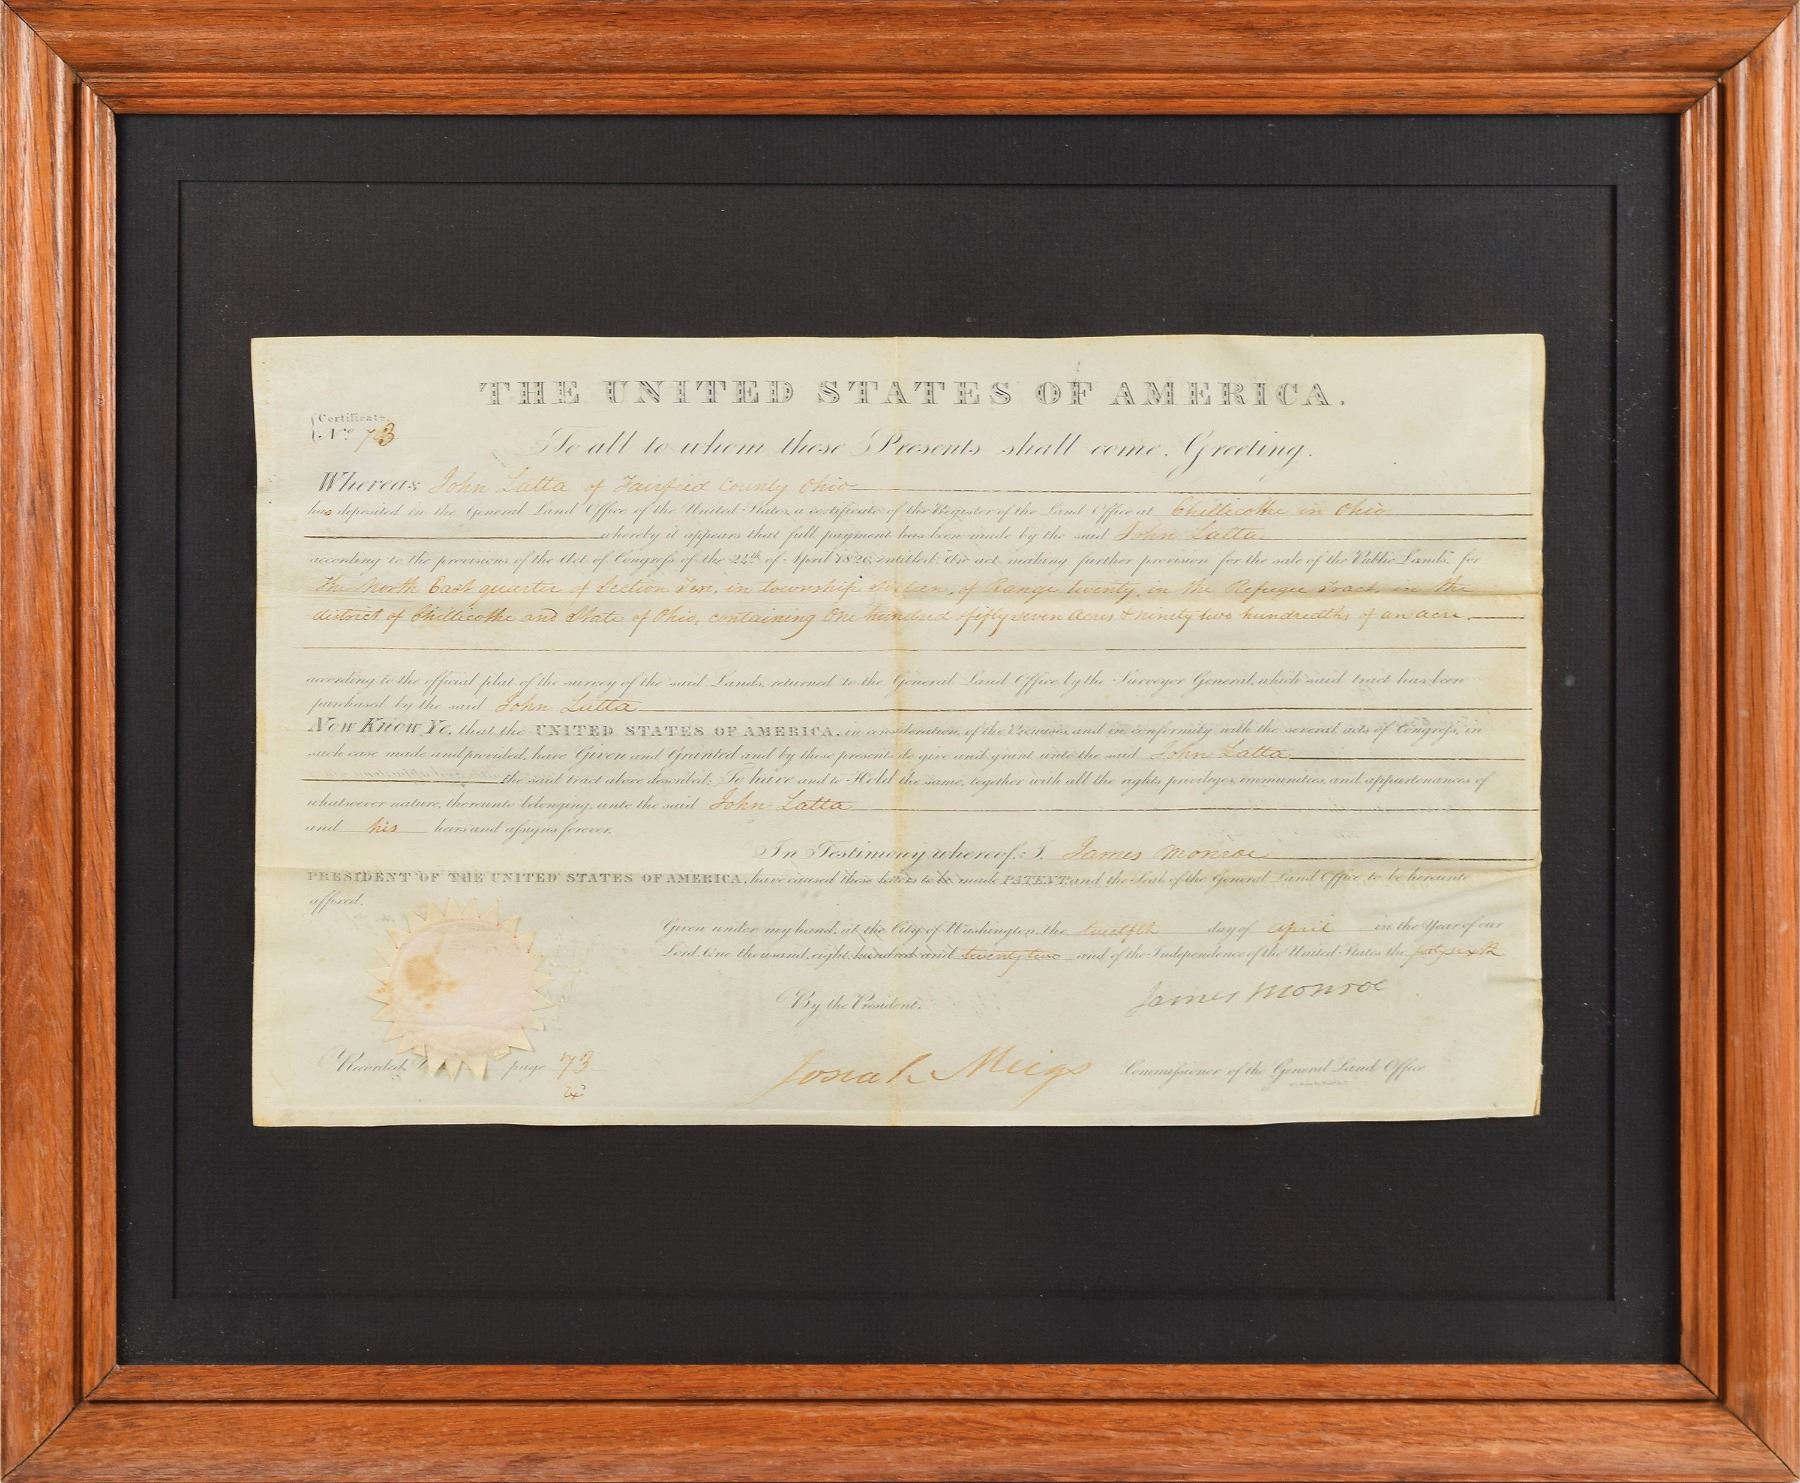 THE UNITED STATES OF AMERICA.
Certificate
No. 73
To all to whom these Presents shall come, Greeting.
Whereas John Latta of Fairfied County Ohio
has deposited in the General Land Office of the United States, a certificate of the Register of the Land Office at Chillicothe in Ohio
whereby it appears that full payment has been made by the said John Latta
according to the provisions of the Act of Congress of the 24th of April 1820, entitled "An act making further provision for the sale of the Public Lands," for
the North East quarter of Section Ten, in township Sixteen, of Range twenty, in the Refugee Tract, in the
district of Chillicothe and State of Ohio, containing One hundred & fifty seven Acres & ninety two hundredths of an acre
according to the official plat of the survey of the said Lands, returned to the General Land Office by the Surveyor General, which said tract has been
purchased by the said John Latta
Now Know Ye, that the UNITED STATES OF AMERICA, in consideration of the Premises, and in conformity with the several acts of Congress, in
such case made and provided, have Given and Granted and by these presents do give and grant unto the said John Latta
the said tract above described: To have and to Hold the same, together with all the rights, privileges, immunities, and appurtenances of
whatsoever nature, thereunto belonging, unto the said John Latta
and his heirs and assigns forever.
In Testimony whereof, I, James Monroe
PRESIDENT OF THE UNITED STATES OF AMERICA, have caused these letters to be made PATENT, and the Seal of the General Land Office to be hereunto
affixed.
Given under my hand, at the City of Washington, the twelfth day of April in the Year of our
Lord One thousand, eight hundred and twenty two and of the Independence of the United States the forty sixth
By the President.
James Monroe
Recorded, page 73
Josiah Meigs Commissioner of the General Land Office